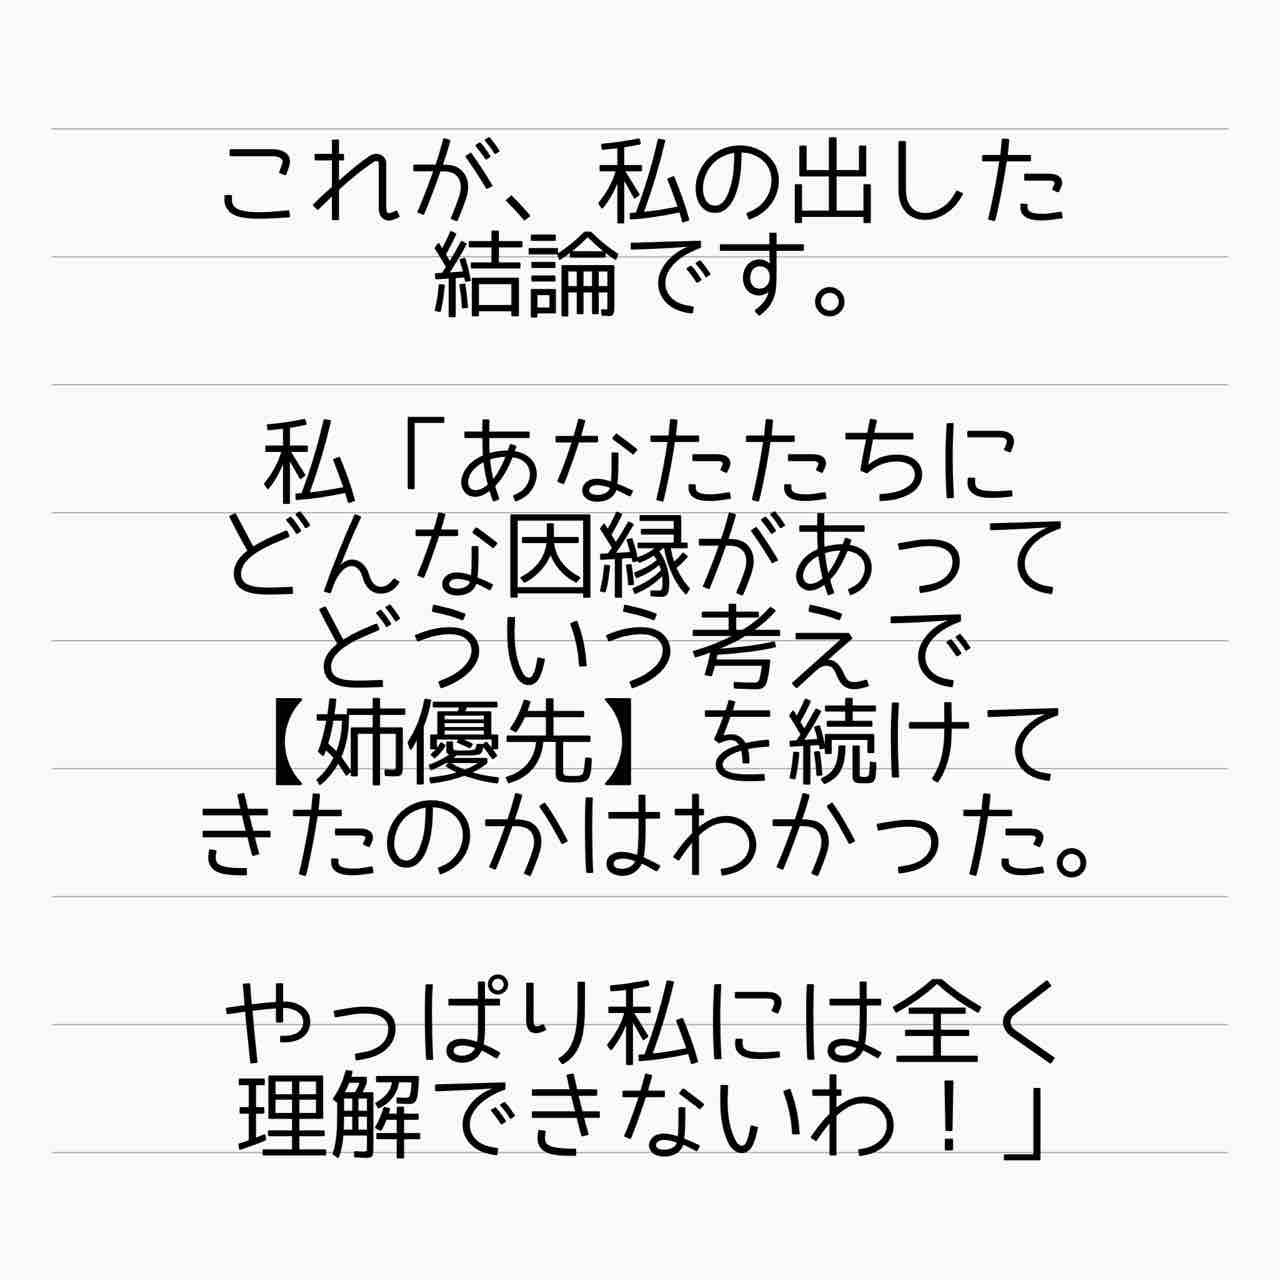 これが、私の出した
結論です。
私「あなたたちに
どんな因縁があって
どういう考えで
【姉優先】を続けて
きたのかはわかった。
やっぱり私には全く
理解できないわ！」